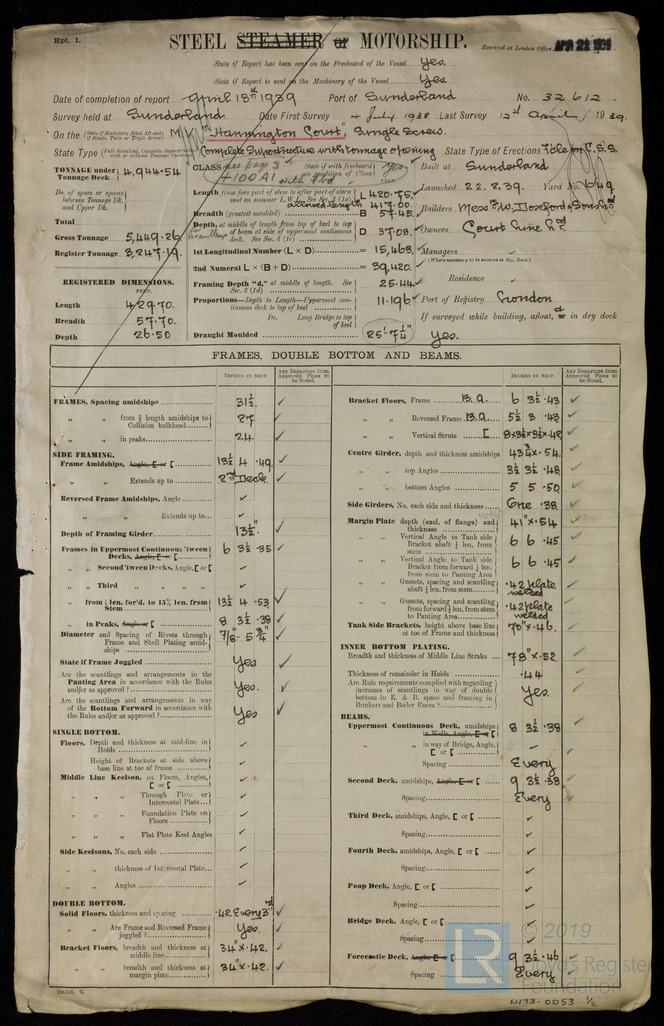 Rpt. 1.
STEEL STEAMER OR MOTORSHIP.
Received at London Office APR 22 1939
State if Report has been sent on the Freeboard of the Vessel Yes.
State if Report is sent on the Machinery of the Vessel Yes
Date of completion of report April 18th 1939 Port of Sunderland No. 32612
Survey held at Sunderland Date First Survey 4 July 1938 Last Survey 12th April 1939.
On the (State if Machinery fitted Aft and if Single, Twin or Triple Screw) M/V "Hannington Court", Single Screw.
State Type (Full Scantling, Complete Superstructure with or without Tonnage Opening) Complete Superstructure with tonnage opening State Type of Erections F'cle on C.S.S.
TONNAGE under Tonnage Deck 4,944.54
Do. of space or spaces between Tonnage Dk. and Upper Dk.
Total
Gross Tonnage 5,449.26
Register Tonnage 3,247.19
REGISTERED DIMENSIONS.
FEET.
Length 429.70
Breadth 57.70
Depth 26.50
CLASS see page 3 State if with freeboard condition of Class Yes
+100A1 with fbd
Length from fore part of stem to after part of stern post on summer L.W.L. See Sec. 3 (1a) L 420.75
417.00
Breadth (greatest moulded) B 57.45
Depth, at middle of length from top of keel to top of beam at side of uppermost continuous deck. See Sec. 3 (1c) D 37.08
1st Longitudinal Number (L × D) = 15,463
2nd Numeral L × (B + D) = 39,420.
Framing Depth "d," at middle of length. See Sec. 3 (1d) 25.44
Proportions—Depth to Length—Uppermost continuous deck to top of keel 11.196
Do. Long Bridge to top of keel
Draught Moulded 25'-7¼"
Built at Sunderland
Launched 22.2.39. Yard No. 549
Builders Messrs W. Doxford & Sons Ld
Owners Court Line Ld
Managers
(Where necessary to be entered in Reg. Book)
Residence
Port of Registry London
If surveyed while building, afloat, or in dry dock
Yes.
FRAMES, DOUBLE BOTTOM AND BEAMS.
INCHES IN SHIP.
Any Departure from Approved Plans to be Noted.
FRAMES, Spacing amidships 31½
" " from ⅗ length amidships to Collision bulkhead 27
" " in peaks 24
SIDE FRAMING.
Frame Amidships, Angle, [ or [ 13½ 4 .49
" " Extends up to 2nd Deck
Reversed Frame Amidships, Angle
" " Extends up to
Depth of Framing Girder 13½"
Frames in Uppermost Continuous 'tween Decks, Angle, [ or [ 6 3½ .35
" " Second 'tween Decks, Angle, [ or [
" " Third " "
" " from ⅕ len. for'd. to 15% len. from Stem 13½ 4 .53
" " in Peaks, Angle or [ 8 3½ .38
Diameter and Spacing of Rivets through Frame and Shell Plating amidships 7/8 - 5¾"
State if Frame Joggled Yes
Are the scantlings and arrangements in the Panting Area in accordance with the Rules and/or as approved? Yes.
Are the scantlings and arrangements in way of the Bottom Forward in accordance with the Rules and/or as approved? Yes
SINGLE BOTTOM.
Floors, Depth and thickness at mid-line in Holds
Height of Brackets at side above base line at toe of frame
Middle Line Keelson, on Floors, Angles, [ or [
" " Through Plate or Intercostal Plate
" " Foundation Plate on Floors
" " Flat Plate Keel Angles
Side Keelsons, No. each side
" " thickness of Intercostal Plate
" " Angles
DOUBLE BOTTOM.
Solid Floors, thickness and spacing .42 Every 3rd
" " Are Frame and Reversed Frame joggled? Yes.
Bracket Floors, breadth and thickness at middle line 34" x .42.
" " breadth and thickness at margin plate 34" x .42.
INCHES IN SHIP.
Any Departure from Approved Plans to be Noted.
Bracket Floors, Frame B.A. 6 3½ .43
" " Reversed Frame B.A. 5½ 3 .43
" " Vertical Struts [ 8 x 3½ x 3½ x .42
Centre Girder, depth and thickness amidships 43¾ x .54
" " top Angles 3½ 3½ .48
" " bottom Angles 5 5 .50
Side Girders, No. each side and thickness One .38
Margin Plate depth (excl. of flange) and thickness 41" x .54
" " Vertical Angle to Tank side Bracket abaft ¼ len. from stem 6 6 .45
" " Vertical Angle to Tank side Bracket from forward ¼ len. from stem to Panting Area 6 6 .45
" " Gussets, spacing and scantling abaft ¼ len. from stem .42 plate welded
" " Gussets, spacing and scantling from forward ¼ len. from stem to Panting Area .42 plate welded
Tank Side Brackets, height above base line at toe of Frame and thickness 70" x .46.
INNER BOTTOM PLATING.
Breadth and thickness of Middle Line Strake 78" x .52
Thickness of remainder in Holds .44
Are Rule requirements complied with regarding increases of scantlings in way of double bottom in E. & B. space and framing in Bunkers and Boiler Room? Yes.
BEAMS.
Uppermost Continuous Deck, amidships in Wells, Angle, [ or [ 8 3½ .38
" " in way of Bridge, Angle, [ or [
Spacing Every
Second Deck, amidships, Angle, [ or [ 9 3½ .38
Spacing Every
Third Deck, amidships, Angle, [ or [
Spacing
Fourth Deck, amidships, Angle, [ or [
Spacing
Poop Deck, Angle, [ or [
Spacing
Bridge Deck, Angle, [ or [
Spacing
Forecastle Deck, Angle, [ or [ 9 3½ .46
Spacing Every
© 2019
Lloyd's Register
Foundation
LR
W173-0053 ½